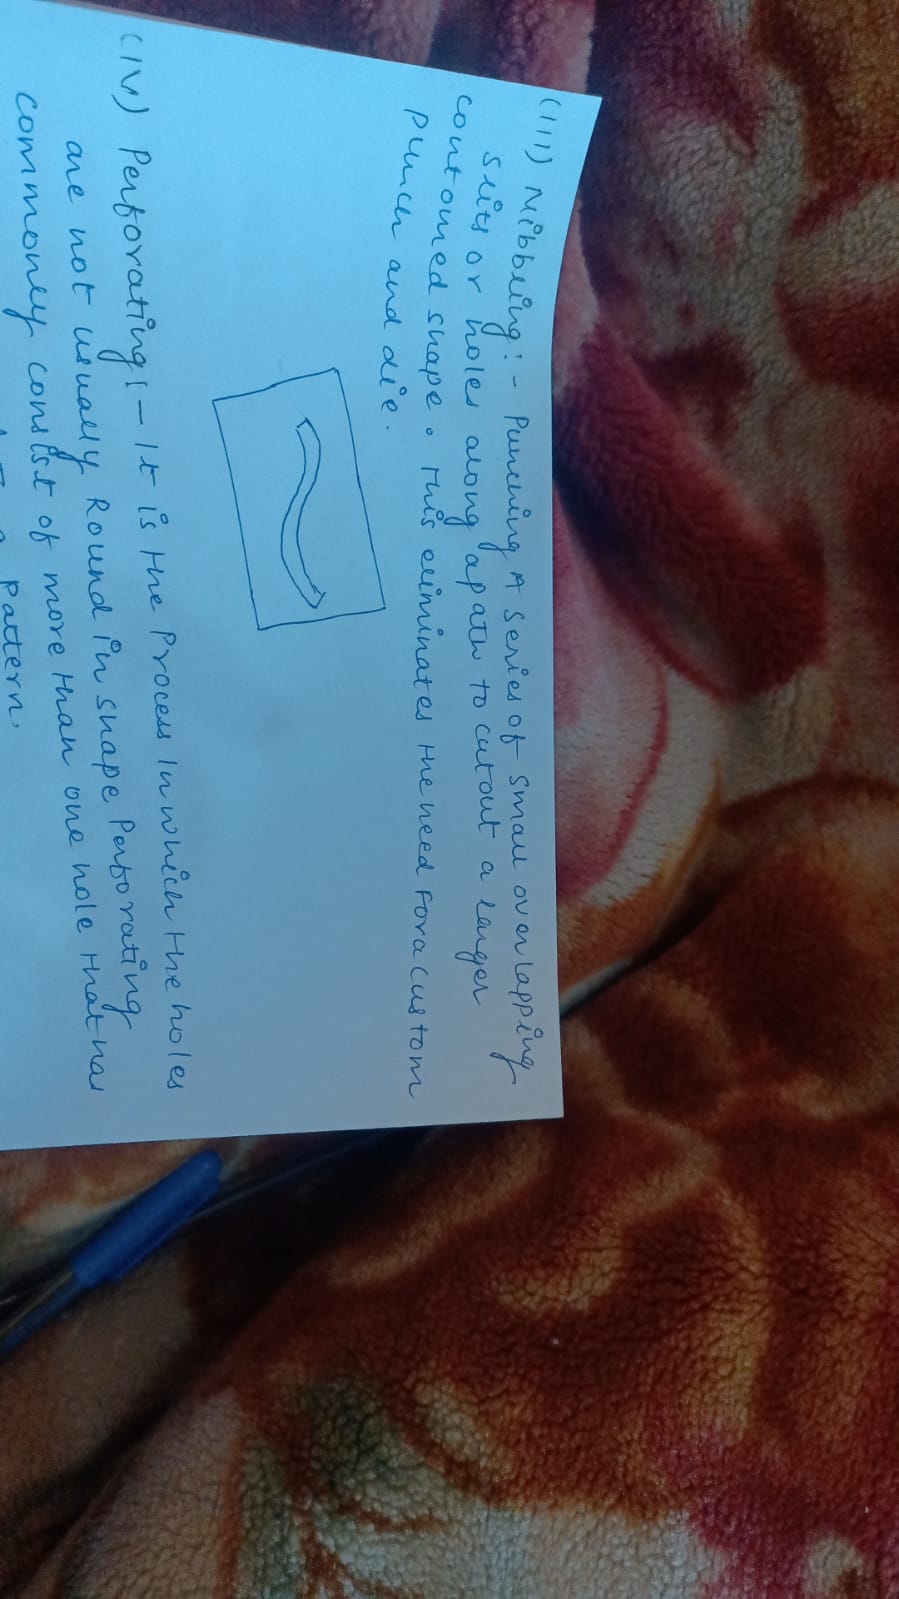 (III) Nibbling:- Punching A series of small overlapping
slits or holes along a path to cutout a larger
contoured shape. This eliminates the need for a custom
punch and die.
(IV) Perforating:- It is the Process In which the holes
are not usually Round in shape Perforating
commonly consist of more than one hole that has
Pattern.